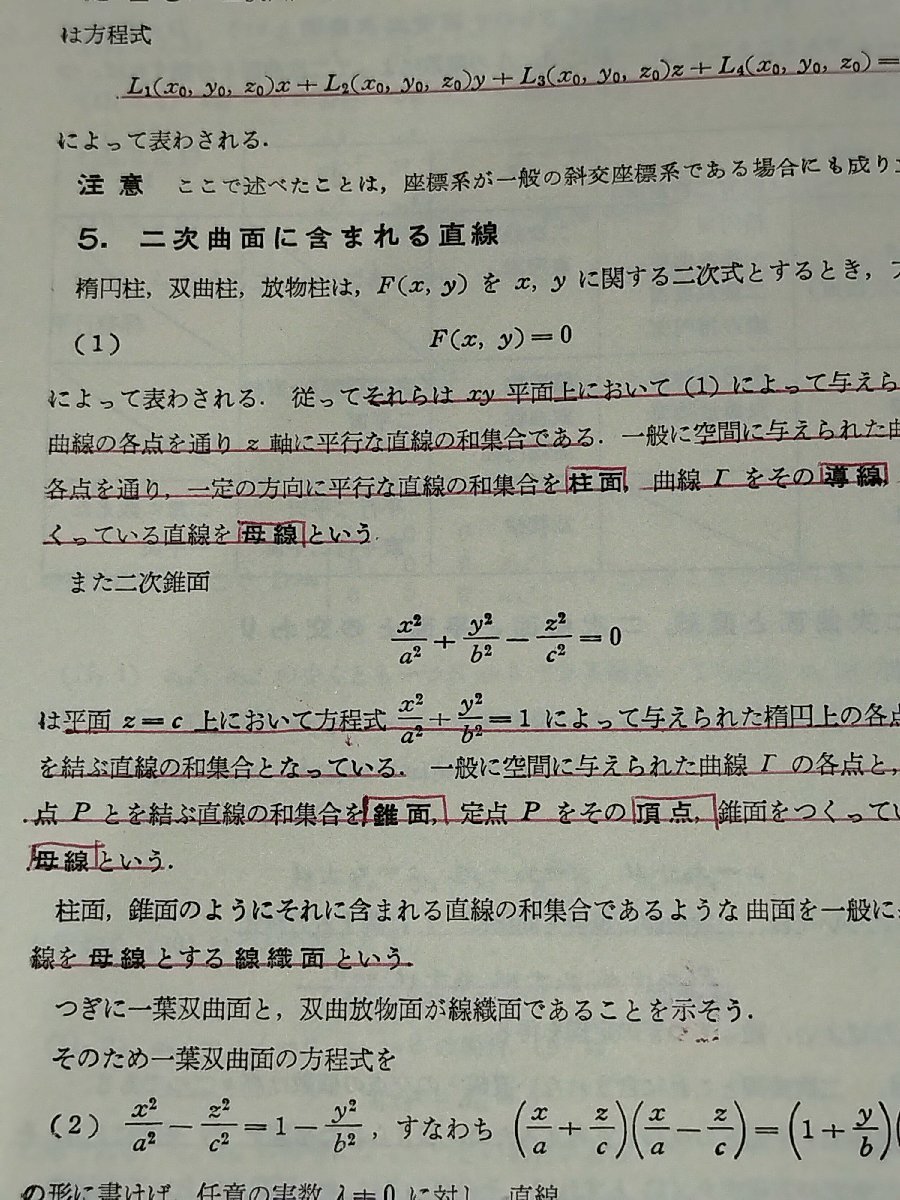 は方程式
L₁(x₀, y₀, z₀)x+L₂(x₀, y₀, z₀)y+L₃(x₀, y₀, z₀)z+L₄(x₀, y₀, z₀)=
によって表わされる.
注意 ここで述べたことは,座標系が一般の斜交座標系である場合にも成り
5. 二次曲面に含まれる直線
楕円柱,双曲柱,放物柱は,F(x, y) を x, y に関する二次式とするとき,
(1) F(x, y)=0
によって表わされる. 従ってそれらは xy 平面上において (1) によって与えら
曲線の各点を通り z 軸に平行な直線の和集合である. 一般に空間に与えられた曲
各点を通り,一定の方向に平行な直線の和集合を柱面,曲線 Γ をその導線,
くっている直線を母線という.
また二次錐面
x²/a²+y²/b²−z²/c²=0
は平面 z=c 上において方程式 x²/a²+y²/b²=1 によって与えられた楕円上の各点
を結ぶ直線の和集合となっている. 一般に空間に与えられた曲線 Γ の各点と,
点 P とを結ぶ直線の和集合を錐面,定点 P をその頂点,錐面をつくってい
母線という.
柱面,錐面のようにそれに含まれる直線の和集合であるような曲面を一般に
線を母線とする線織面という.
つぎに一葉双曲面と,双曲放物面が線織面であることを示そう.
そのため一葉双曲面の方程式を
(2) x²/a²−z²/c²=1−y²/b², すなわち (x/a+z/c)(x/a−z/c)=(1+y/b)(
の形に書けば,任意の実数 λ≠0 に対し,直線